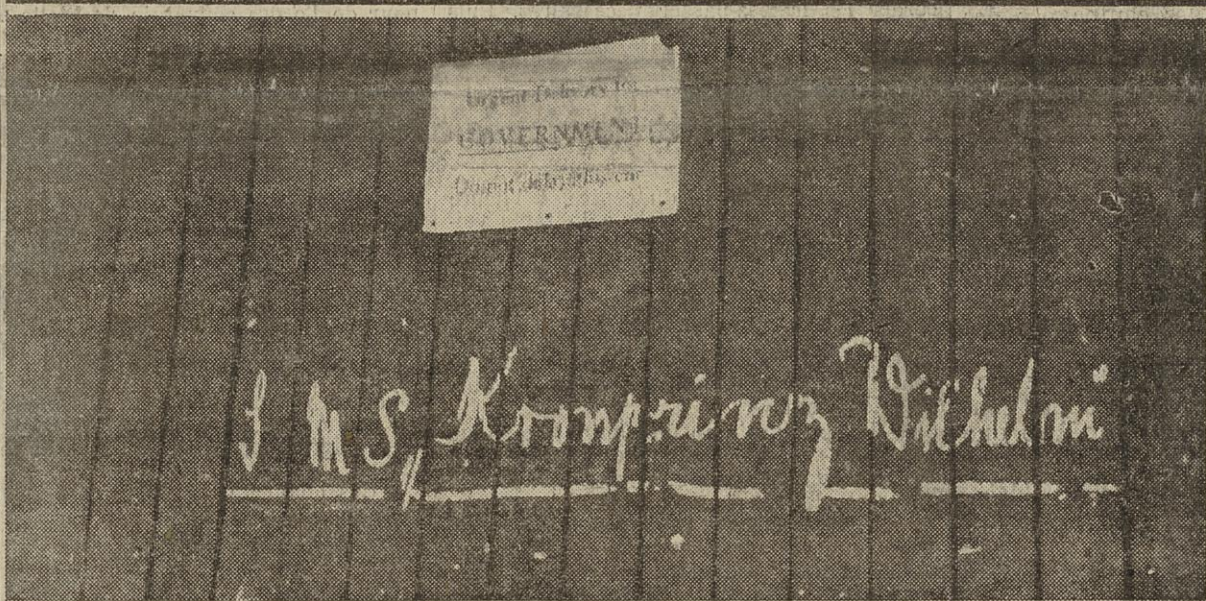 Urgent Delivery
GOVERNMENT
S M S „Kronprinz Wilhelm"